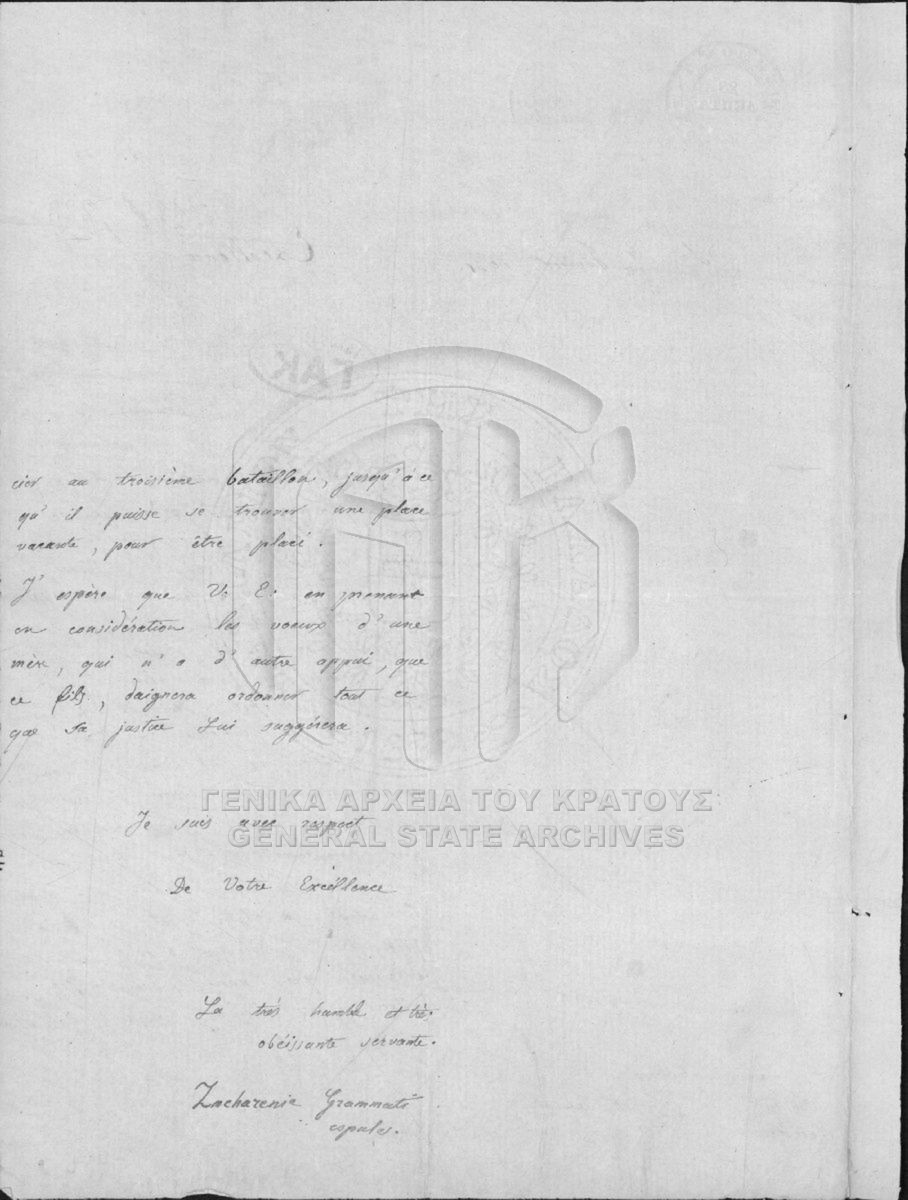 cier au troisième bataillon, jusqu'à ce
qu'il puisse se trouver une place
vacante, pour être placé.
J'espère que V. E. en prenant
en considération les voeux d'une
mère, qui n'a d'autre appui, que
ce fils, daignera ordonner tout ce
que sa justice Lui suggérera.
ΓΕΝΙΚΑ ΑΡΧΕΙΑ ΤΟΥ ΚΡΑΤΟΥΣ
Je suis avec respect
GENERAL STATE ARCHIVES
De Votre Excéllence
La très humble et très
obéissante servante.
Grammati